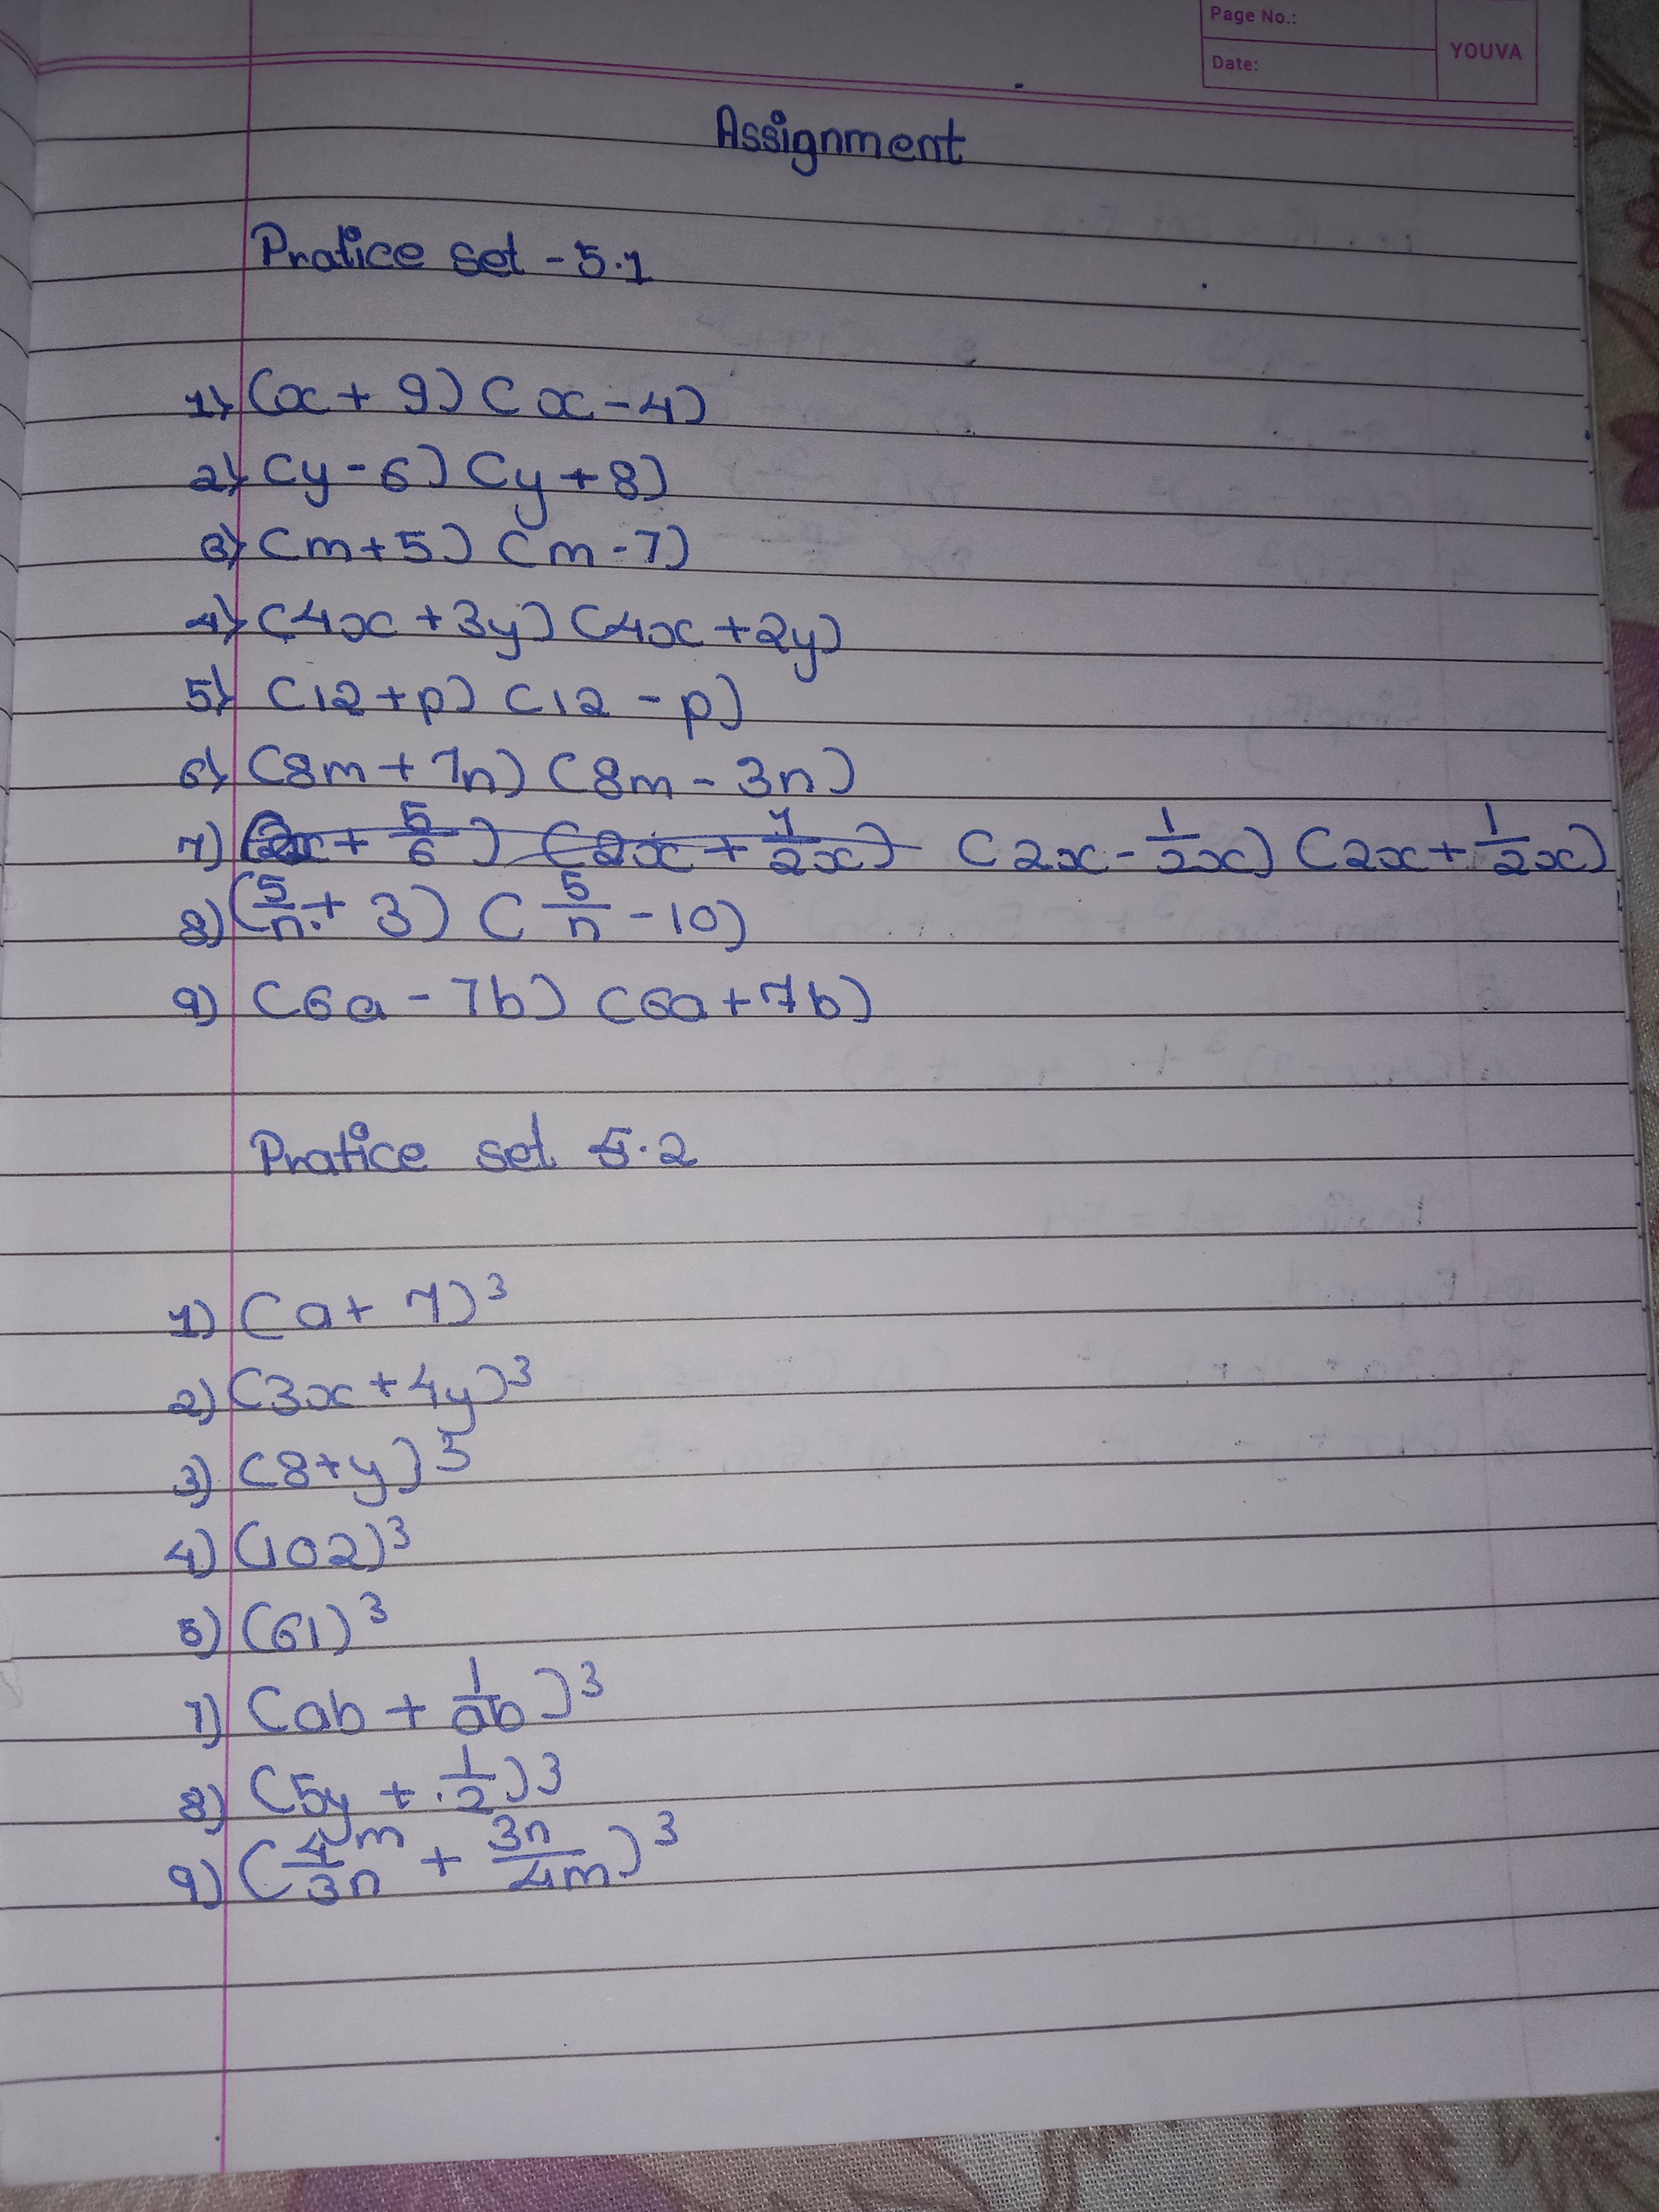 Page No.:
YOUVA
Date:
Assignment
Pratice set - 5.1
1) (x + 9) (x - 4)
2) (y - 6) (y + 8)
3) (m + 5) (m - 7)
4) (4x + 3y) (4x + 2y)
5) (12 + p) (12 - p)
6) (8m + 7n) (8m - 3n)
7) (2x - 1/2x) (2x + 1/2x)
8) (5/n + 3) (5/n - 10)
9) (6a - 7b) (6a + 7b)
Pratice set 5.2
1) (a + 7)³
2) (3x + 4y)³
3) (8 + y)³
4) (102)³
5) (61)³
7) (ab + 1/ab)³
8) (5y + 1/2)³
9) (4m/3n + 3n/4m)³